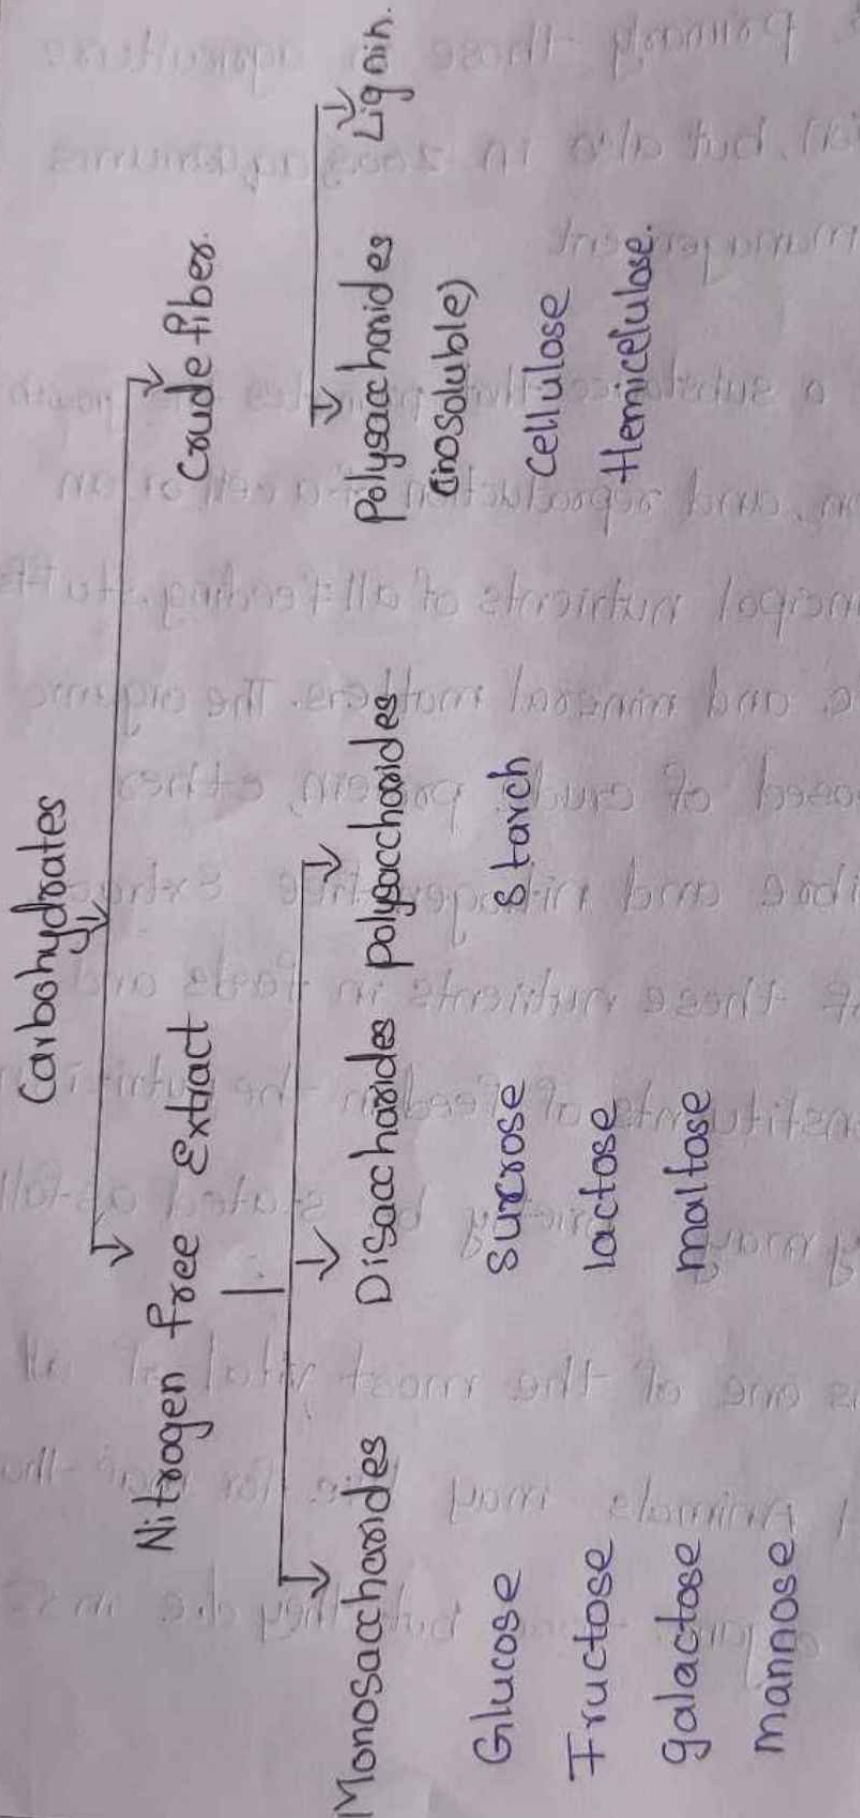 Carbohydrates
Nitrogen free extract
Crude fiber.
Monosaccharides
Disaccharides
polysaccharides
Polysaccharides
(insoluble)
Lignin.
Glucose
Fructose
galactose
mannose
sucrose
lactose
maltose
starch
cellulose
Hemicelulose.